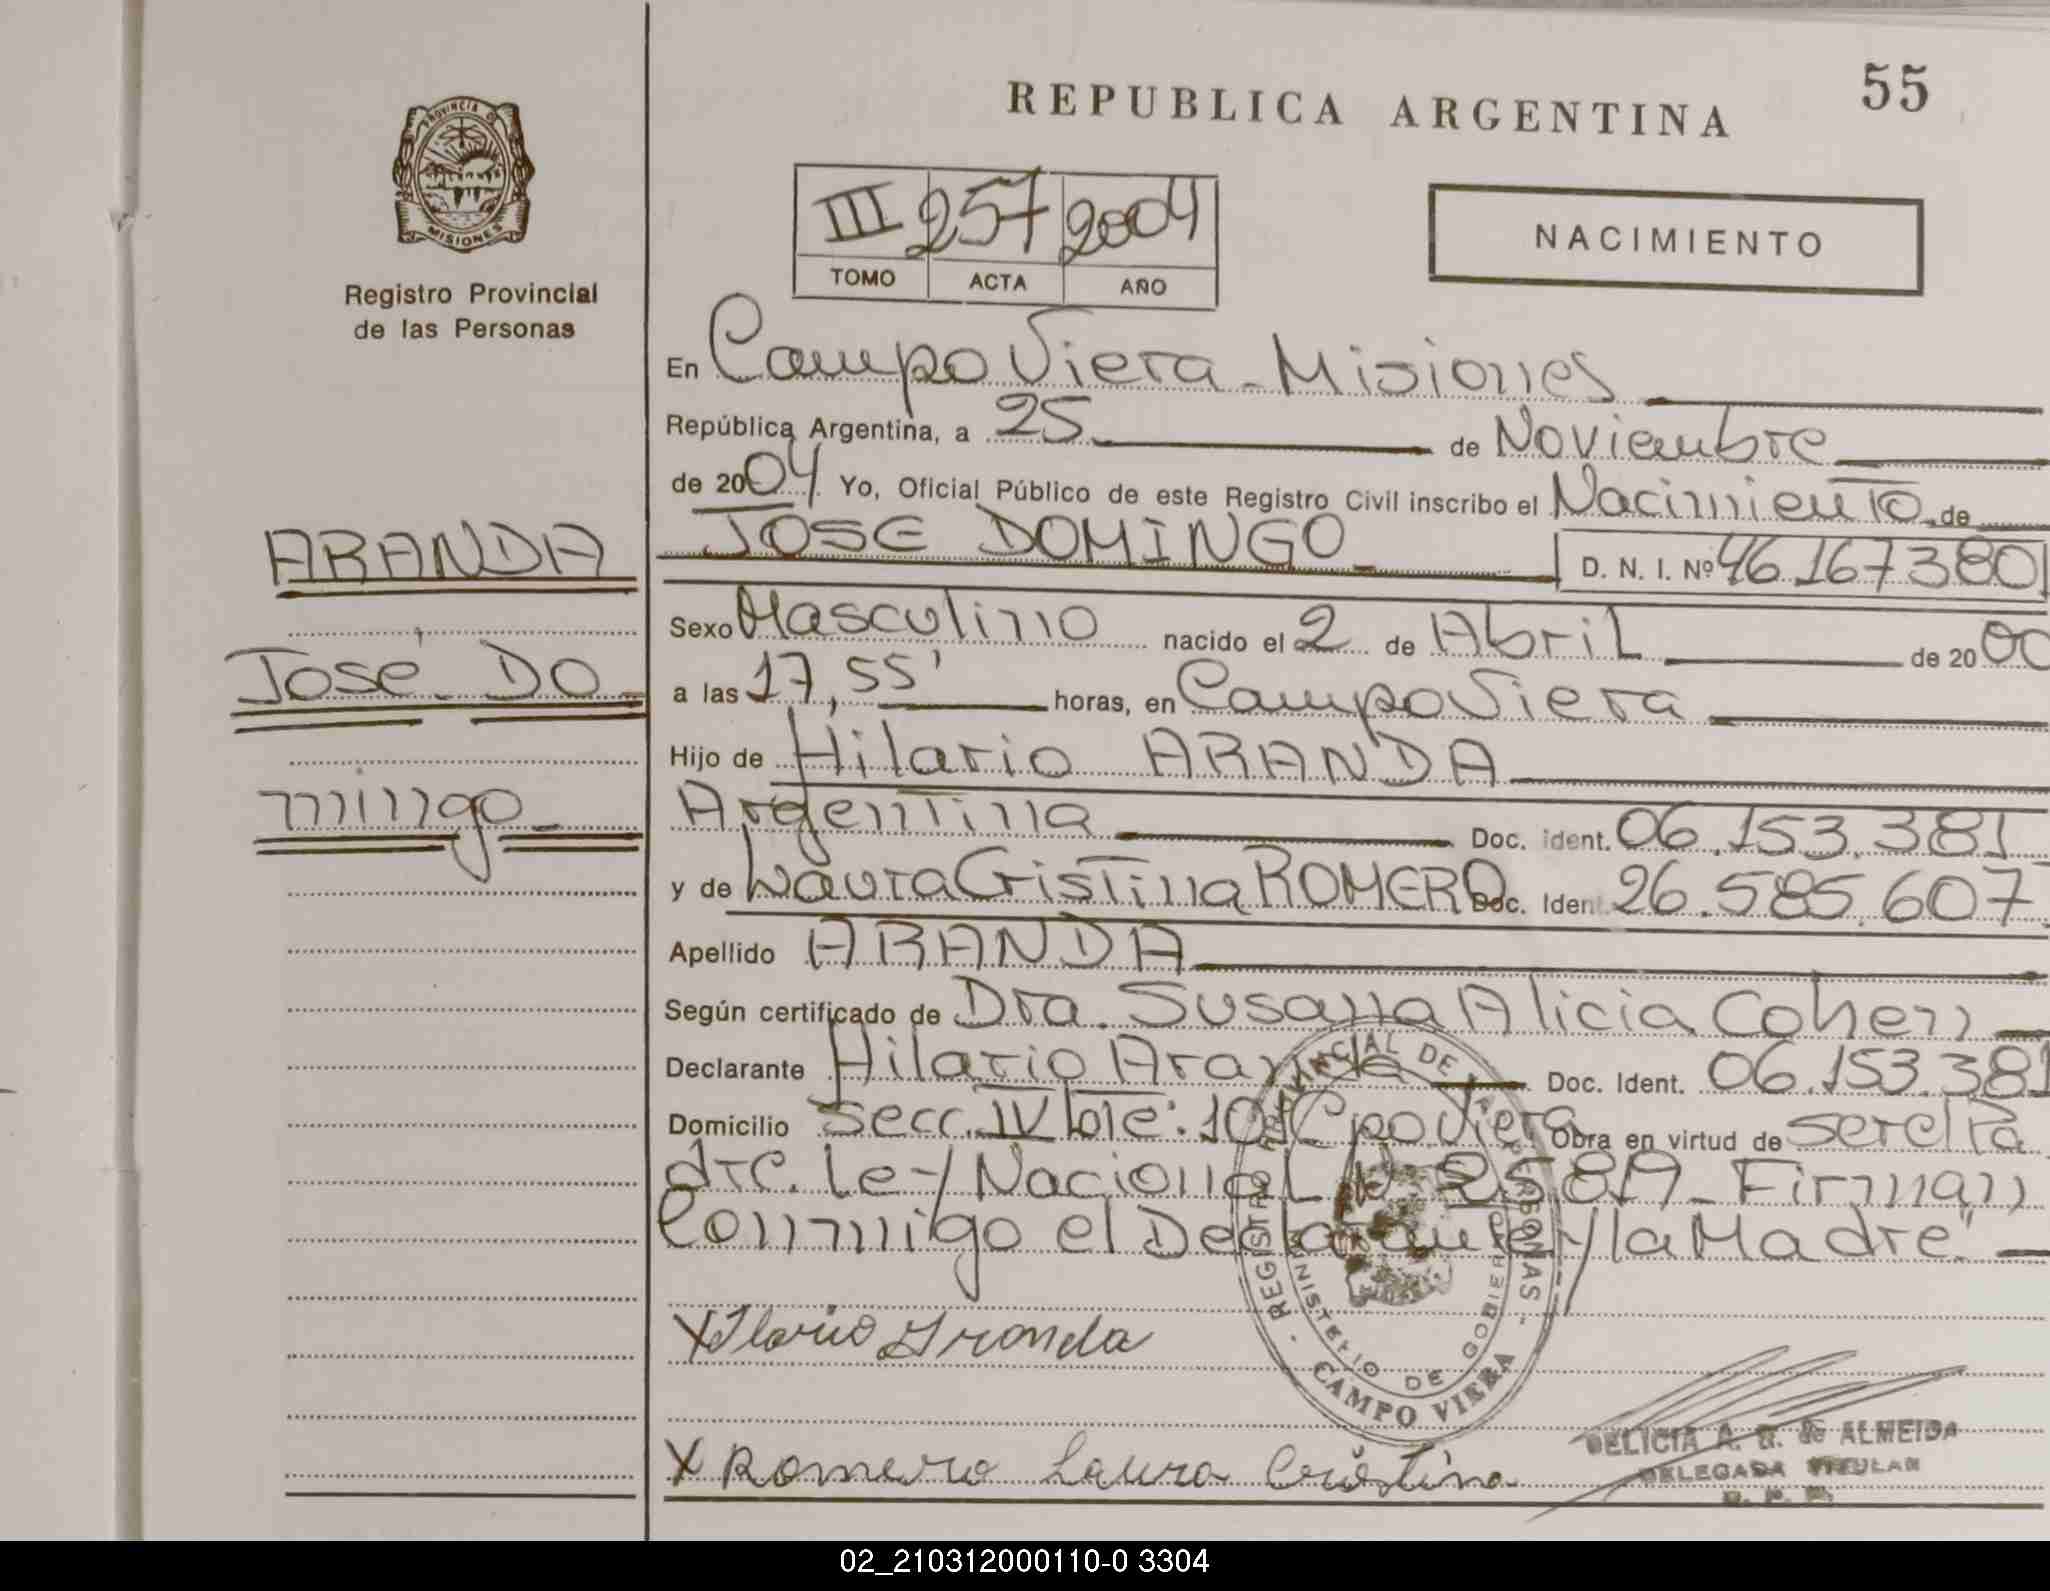 55
REPUBLICA ARGENTINA
PROVINCIA DE
MISIONES
Registro Provincial
de las Personas
III 257 2004
TOMO ACTA AÑO
NACIMIENTO
En Campo Viera - Misiones
República Argentina, a 25 de Noviembre
de 2004 Yo, Oficial Público de este Registro Civil inscribo el Nacimiento de
JOSE DOMINGO D. N. I. Nº 46.167.380
ARANDA
Sexo Masculino nacido el 2 de Abril de 2000
José Do
mingo
a las 17,55' horas, en Campo Viera
Hijo de Hilario ARANDA
Argentina Doc. ident. 06.153.381
y de Laura Cristina ROMERO Doc. Ident. 26.585.607
Apellido ARANDA
Según certificado de Dra. Susana Alicia Cohen
Declarante Hilario Aranda Doc. Ident. 06.153.381
Domicilio Secc. IV lote: 101 Cpo Viera Obra en virtud de ser el Pa
dre. Ley Nacional Nº 25819 - Firman
Conmigo el Declarante y la Madre"
REGISTRO PROVINCIAL DE LAS PERSONAS
MINISTERIO DE GOBIERNO
CAMPO VIERA
X Ilario Aranda
X Romero Laura Cristina
DELICIA A. G. de ALMEIDA
DELEGADA TITULAR
R. P. P.
02_210312000110-0 3304